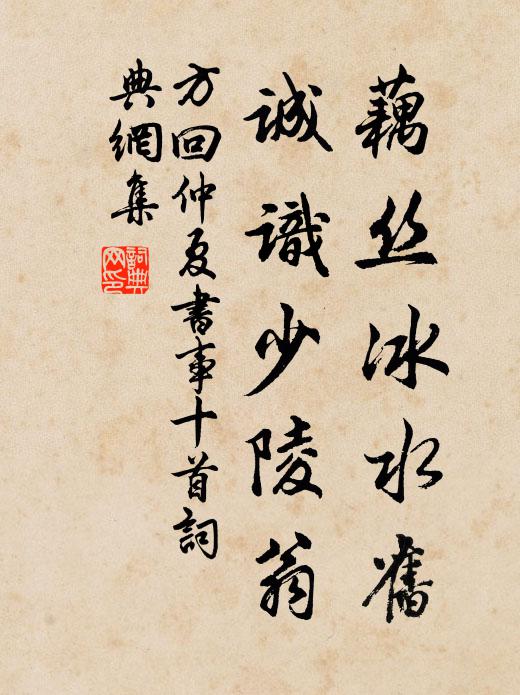 藕丝冰水舊
誠識少陵翁
方回仲夏書事十首詞
典網集
詞典網印